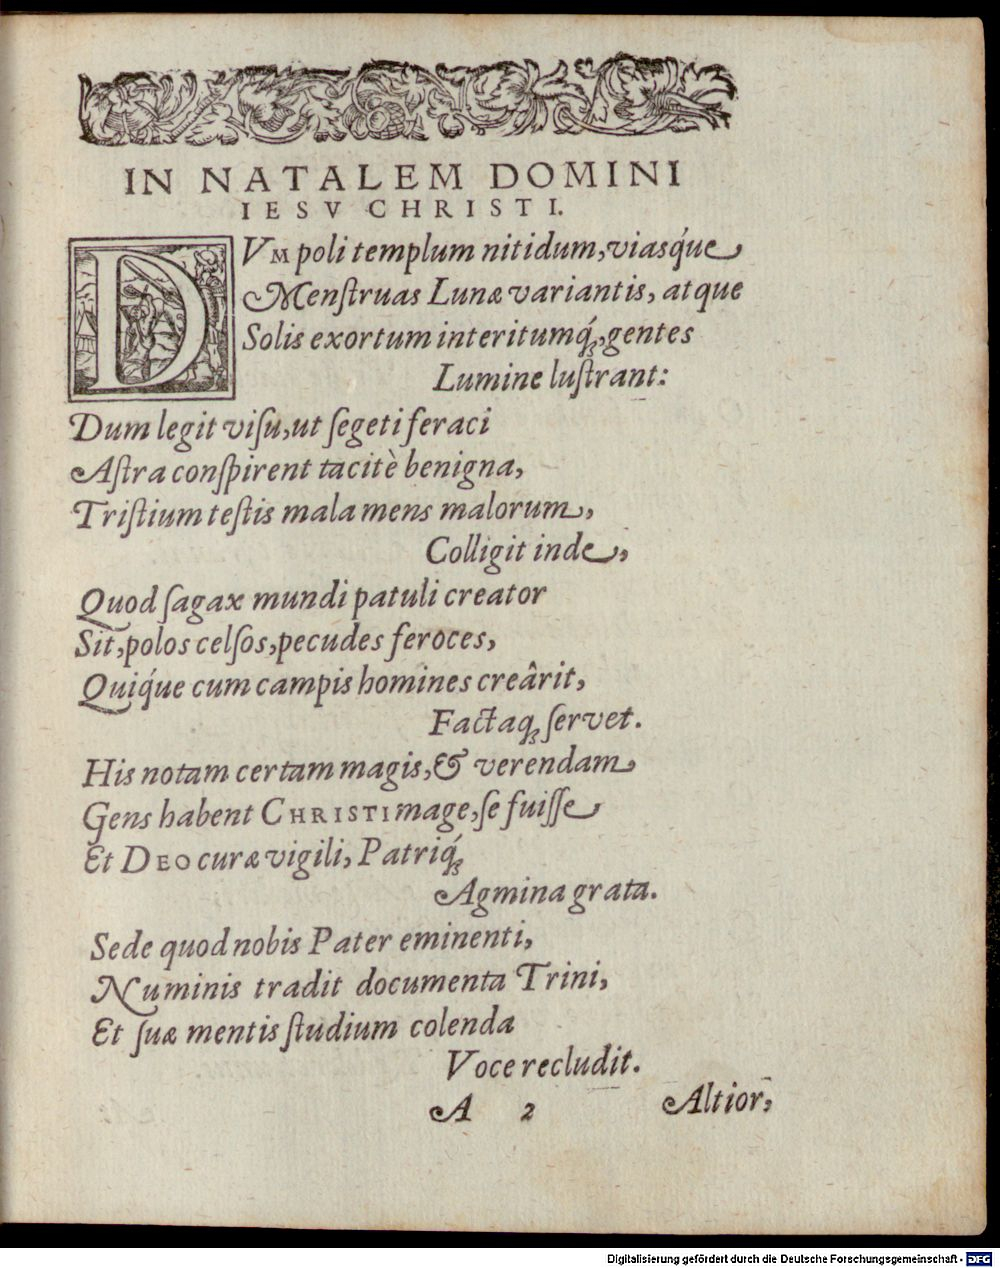 IN NATALEM DOMINI
IESV CHRISTI.
DVM poli templum nitidum, viasq́ue
Menſtruas Lunæ variantis, atque
Solis exortum interitumq́ꝫ, gentes
Lumine luſtrant:
Dum legit viſu, ut ſegeti feraci
Aſtra conſpirent tacitè benigna,
Triſtium teſtis mala mens malorum,
Colligit inde,
Quod ſagax mundi patuli creator
Sit, polos celſos, pecudes feroces,
Quiq́ue cum campis homines creârit,
Factaqꝫ ſervet.
His notam certam magis, & verendam
Gens habent CHRISTI mage, ſe fuiſſe
Et DEO curæ vigili, Patriq́ꝫ
Agmina grata.
Sede quod nobis Pater eminenti,
Numinis tradit documenta Trini,
Et ſuæ mentis ſtudium colenda
Voce recludit.
A 2 Altior,
Digitalisierung gefördert durch die Deutsche Forschungsgemeinschaft - DFG